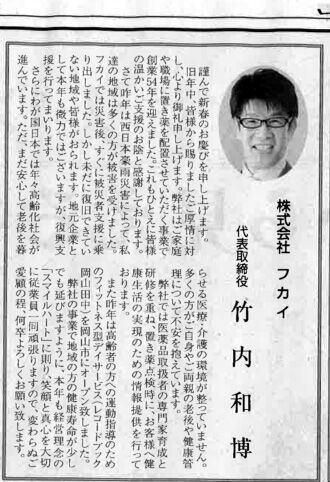 株式会社 フカイ
代表取締役 竹内和博
謹んで新春のお慶びを申し上げます。
旧年中、皆様から賜りましたご厚情に対
し、心より御礼申し上げます。弊社はご家庭
や職場に置き薬を配置させていただく事業で
創業54年を迎えました。これもひとえに皆様
の温かいご支援のお陰と感謝しております。
さて昨年は西日本豪雨災害によって、私
達の地域は多くの方が被害を受けました。
フカイでは災害後、すぐに被災者支援に乗
り出しました。しかし未だに復旧できてい
ない地域や皆様がおられます。地元企業と
して本年も微力ではございますが、復興支
援を行ってまいります。
さらにわが国日本では年々高齢化社会が
進んでいます。ただ、まだ安心して老後を暮
らせる医療・介護の環境が整っていません。
多くの方がご自身やご両親の老後や健康管
理について不安を抱えています。
弊社では医薬品取扱者の専門家育成と
研修を重ね、置き薬点検時に、お客様へ健
康生活の実現のための情報提供を行って
おります。
また昨年は高齢者の方への運動指導のため
のフィットネス型デイサービス「レコードブック
岡山田中」を岡山市にオープン致しました。
弊社の事業で地域の方の健康寿命が少し
でも延びますように、本年も経営理念の
「スマイルハート」に則り、笑顔と真心を大切
に従業員一同頑張りますので、変わらぬご
愛顧の程、何卒よろしくお願い致します。